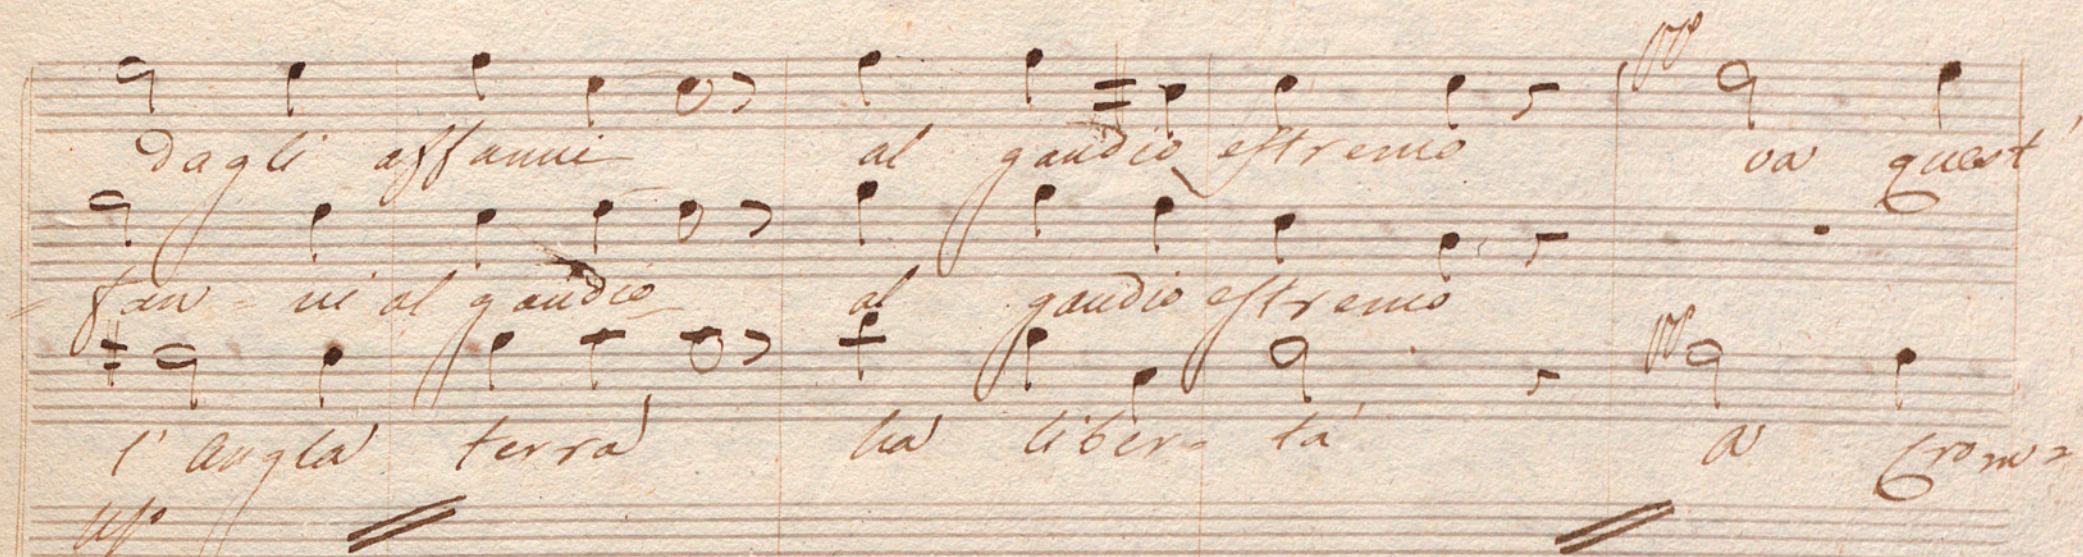 pp
dagli affanni al gaudio estremo va quest'
= fan = ni al gaudio al gaudio estremo
pp
l'Angla terra ha liber= tà a Crom=